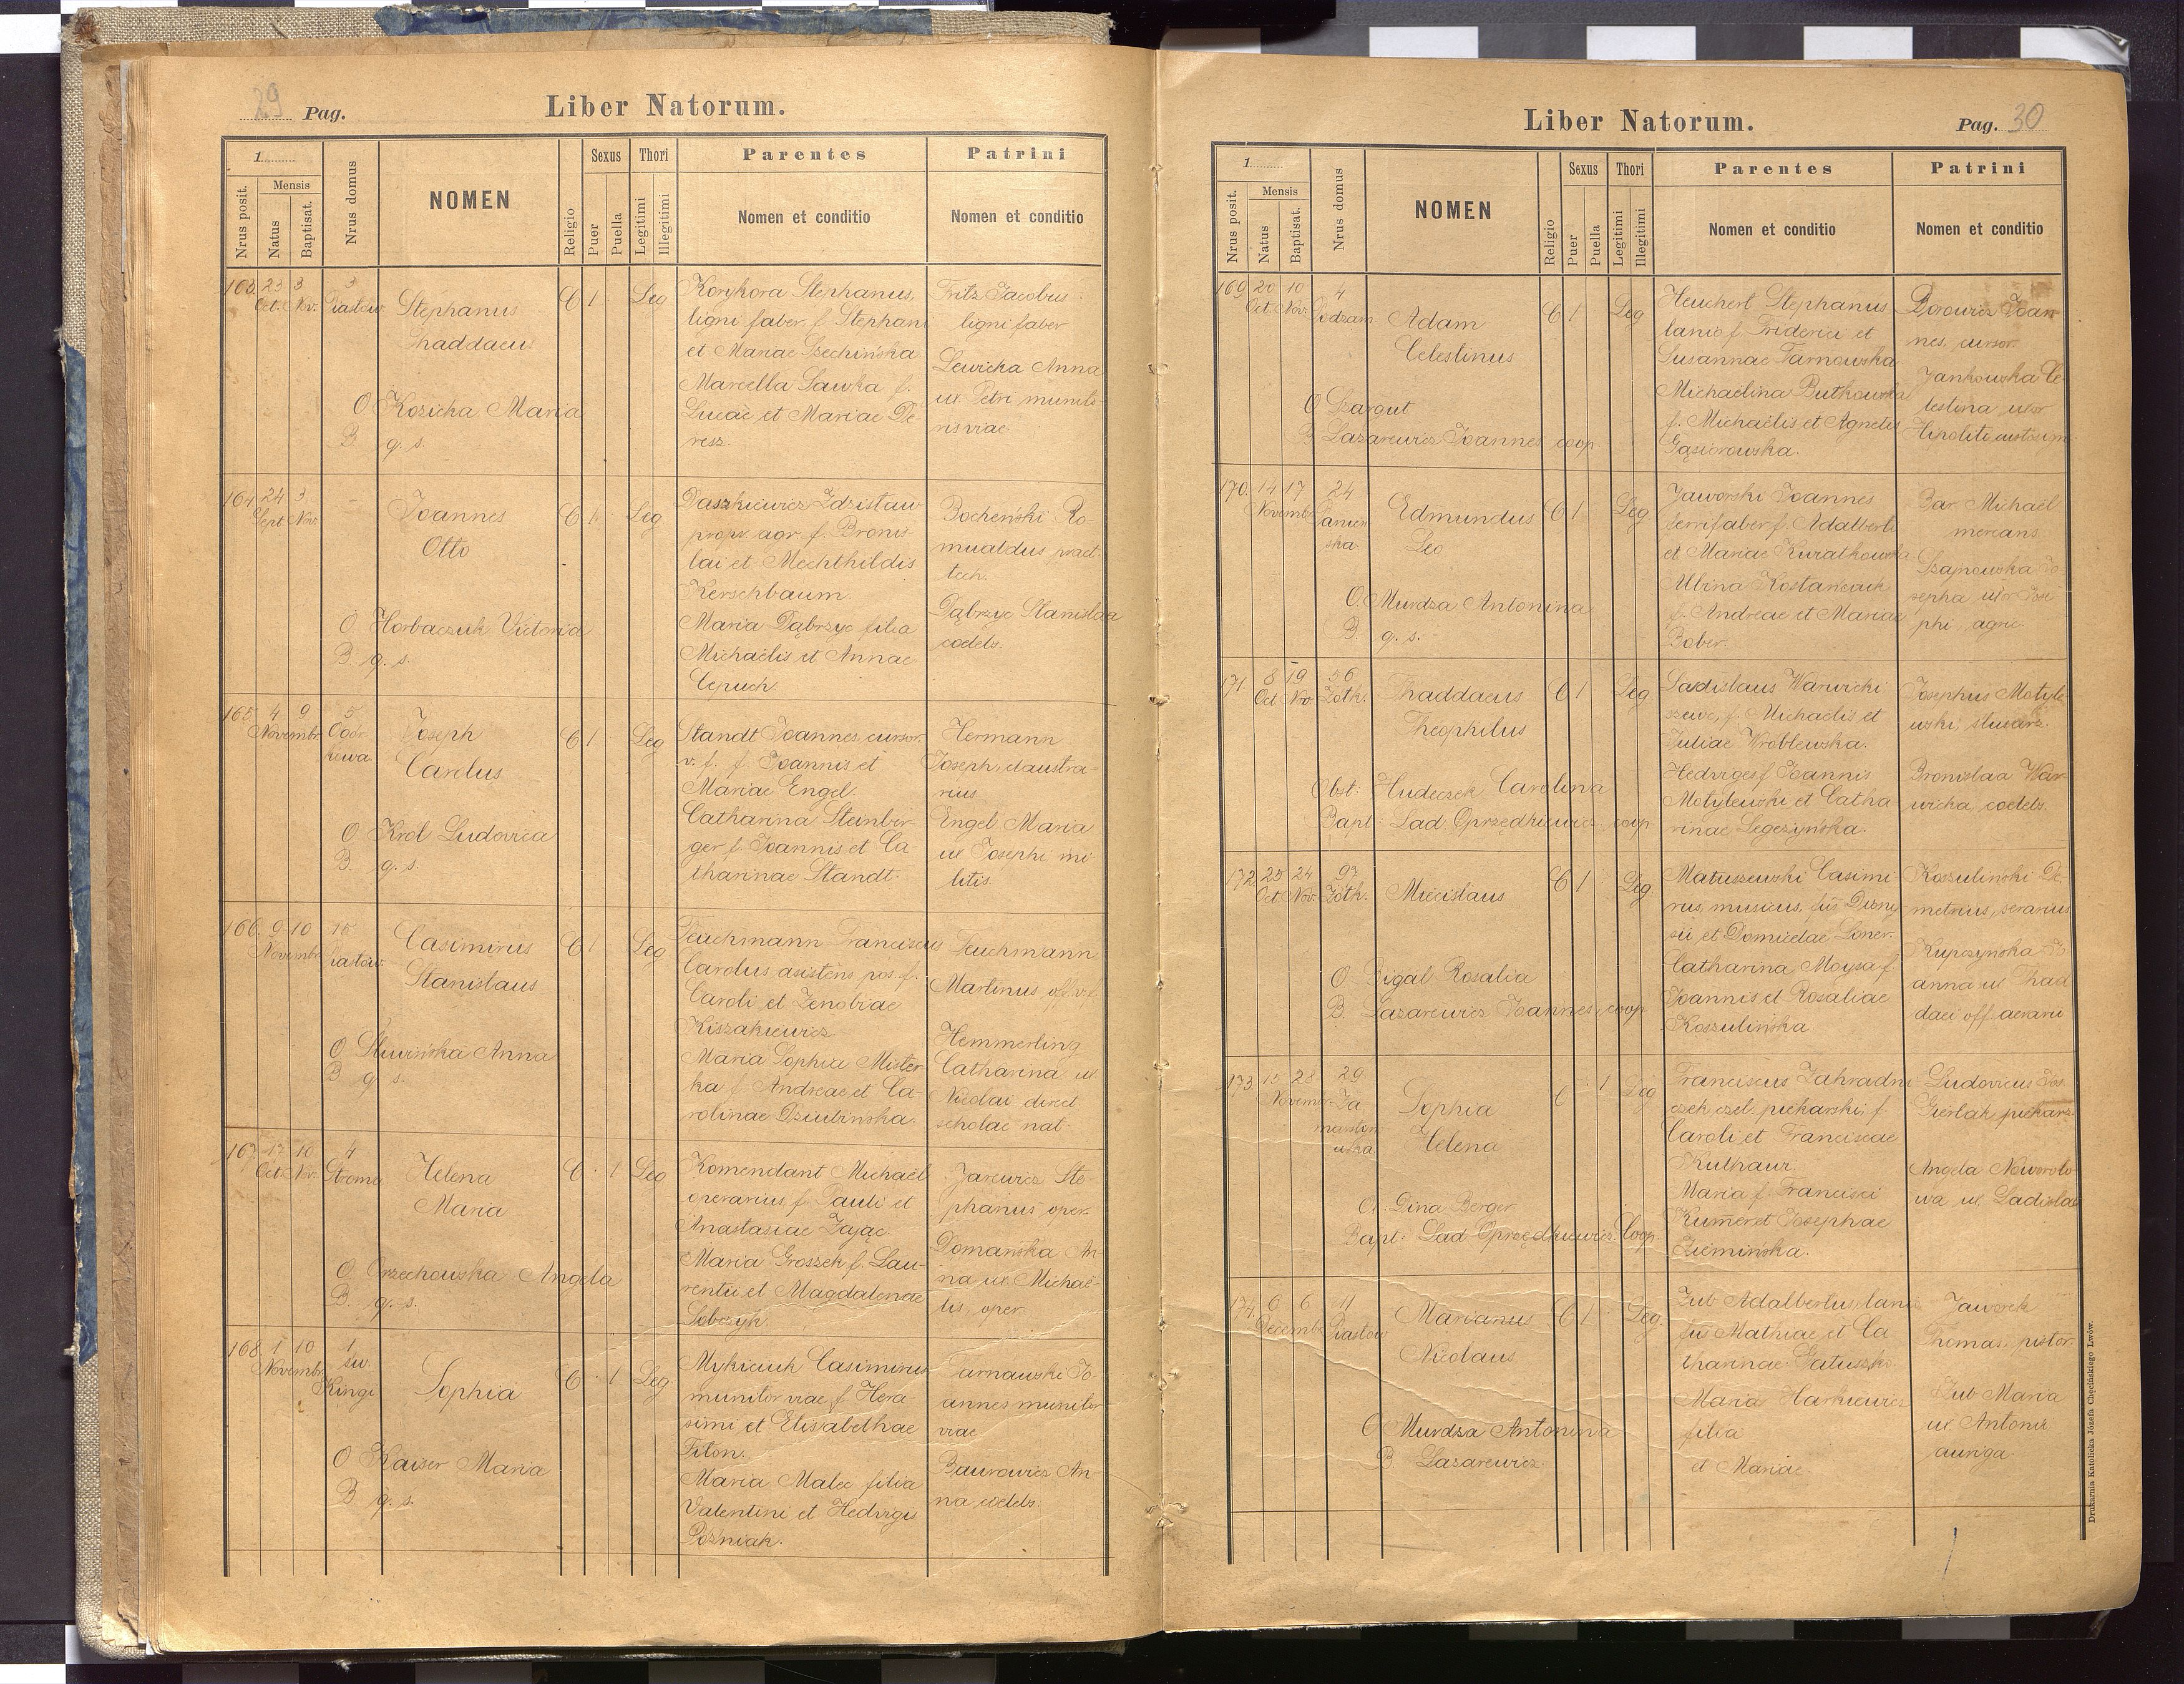 29 Pag.
Liber Natorum.
1
Nrus posit.
Mensis
Natus
Baptisat.
Nrus domus
NOMEN
Religio
Sexus
Puer
Puella
Thori
Legitimi
Illegitimi
Parentes
Nomen et conditio
Patrini
Nomen et conditio
163. 23 3 3
Oct. Nov. Piastów
Stephanus
Thaddaeus
C 1 Leg
O Kozicka Maria
B q. s.
Korykora Stephanus,
ligni faber f. Stephani
et Mariae Szechińska
Marcella Sawka f.
Lucae et Mariae De-
resz.
Fritz Jacobus
ligni faber
Lewicka Anna
ux Petri munito-
ris viae
164. 24 3
Sept Nov.
Joannes
Otto
C 1 Leg
O Horbaczuk Victoria
B. q. s.
Daszkiewicz Zdzisław
propr. agr. f. Bronis-
lai et Mechthildis
Kerschbaum
Maria Dąbrzyc filia
Michaëlis et Annae
Cepuch
Bocheński Ro-
mualdus pract.
tech.
Dąbrzyc Stanislaa
coelebs
165. 4 9 5
Novembr. Ogór-
kowa
Joseph
Carolus
C 1 Leg
O Krol Ludovica
B. q. s.
Standt Joannes, cursor
v. f. f. Joannis et
Mariae Engel.
Catharina Steinber-
ger f. Joannis et Ca-
tharinae Standt
Hermann
Joseph, claustra-
rius
Engel Maria
ux Josephi mi-
litis
166. 9 10 15
Novembr. Piastów
Casimirus
Stanislaus
C 1 Leg
O Śliwińska Anna
B q s.
Teuchmann Franciscus
Carolus asistens pos. f.
Caroli et Zenobiae
Kiszakiewicz
Maria Sophia Mister-
ka f. Andreae et Ca-
rolinae Dziubińska.
Teuchmann
Martinus off. v. f.
Hemmerling
Catharina ux
Nicolai direct
scholae nat
167. 17 10 4
Oct. Nov. Stroma
Helena
Maria
C 1 Leg
O Orzechowska Angela
B q. s.
Komendant Michaël
operarius f. Pauli et
Anastasiae Zając.
Maria Groszek f. Lau-
rentii et Magdalenae
Sobczyk.
Jarewicz Ste-
phanus oper.
Domańska An-
na ux. Michaë-
lis, oper
168. 1 10 1
Novembr. św.
Kingi
Sophia
C 1 Leg
O Kaiser Maria
B q. s.
Mykiciuk Casimirus
munitor viae f. Hera-
simi et Elisabethae
Titon.
Maria Malec filia
Valentini et Hedvigis
Poźniak.
Tarnawski Jo-
annes munitor
viae
Baurowicz An-
na coelebs
Liber Natorum.
Pag. 30
1
Nrus posit.
Mensis
Natus
Baptisat.
Nrus domus
NOMEN
Religio
Sexus
Puer
Puella
Thori
Legitimi
Illegitimi
Parentes
Nomen et conditio
Patrini
Nomen et conditio
169. 20 10 4
Oct Nov. Podzam
Adam
Celestinus
C 1 Leg
O Szargut
B Lazarewicz Joannes coop.
Heuchert Stephanus
lanio f. Friderici et
Susannae Tarnowska
Michaëlina Butkowska
f. Michaëlis et Agnetis
Gąsiorowska.
Dorowicz Joan-
nes, cursor
Jankowska Ce-
lestina uxor
Hipoliti
170. 14 17 24
Novembr. Panień-
ska
Edmundus
Leo
C 1 Leg
O. Murdza Antonina
B. q. s.
Jaworski Joannes
ferrifaber f. Adalberti
et Mariae Kwiatkowska
Albina Kostańczuk
f. Andreae et Mariae
Bober.
Bar Michaël
mercans.
Szajnowska Jo-
sepha uxor Jose-
phi, agric.
171. 8 19 56
Oct Nov. Żółk.
Thaddaeus
Theophilus
C 1 Leg
Obst: Hudeczek Carolina
Bapt. Lad Oprzędkiewicz, coop
Ladislaus Warwicki
szewc, f. Michaëlis et
Juliae Wróblewska.
Hedviges f Joannis
Motylewski et Catha-
rinae Legezyńska.
Josephus Motyle-
wski, ślusarz.
Bronislaa War-
wicka, coelebs.
172. 25 24 97
Oct Nov. Żółk.
Miecislaus
C 1 Leg
O Bigal Rosalia
B. Lazarewicz Joannes, coop
Matuszewski Casimi-
rus, musicus, fil. Diony-
sii et Domicelae Loner.
Catharina Moysa f
Joannis et Rosaliae
Koszulińska
Koszulinski De-
metrius, serarius
Kupczyńska Jo-
anna ux Thad-
daei off. aerarii
173. 15 28 29
Novembr. Za-
marsty-
nowska
Sophia
Helena
C 1 Leg
O. Dina Berger
Bapt: Lad Oprzędkiewicz, Coop
Franciscus Zahradni-
czek czel. piekarski, f.
Caroli et Franciscae
Kulhaur
Maria f. Francisci
Kumer et Josephae
Ziemińska.
Ludovicus Jos.
Gierlak piekarz
Angela Noworolo-
wa ux. Ladislai
174. 6 6 11
Decembr. Piastów
Marianus
Nicolaus
C 1 Leg.
O Murdza Antonina
B. Lazarewicz
Zub Adalbertus, lanio
fil. Mathiae et Ca-
tharinae
Maria Harkiewicz
filia
et Mariae
Jaworek
Thomas, pistor
Zub Maria
ux Antonii
auriga
Drukarnia Katolicka Józefa Chęcińskiego Lwów.